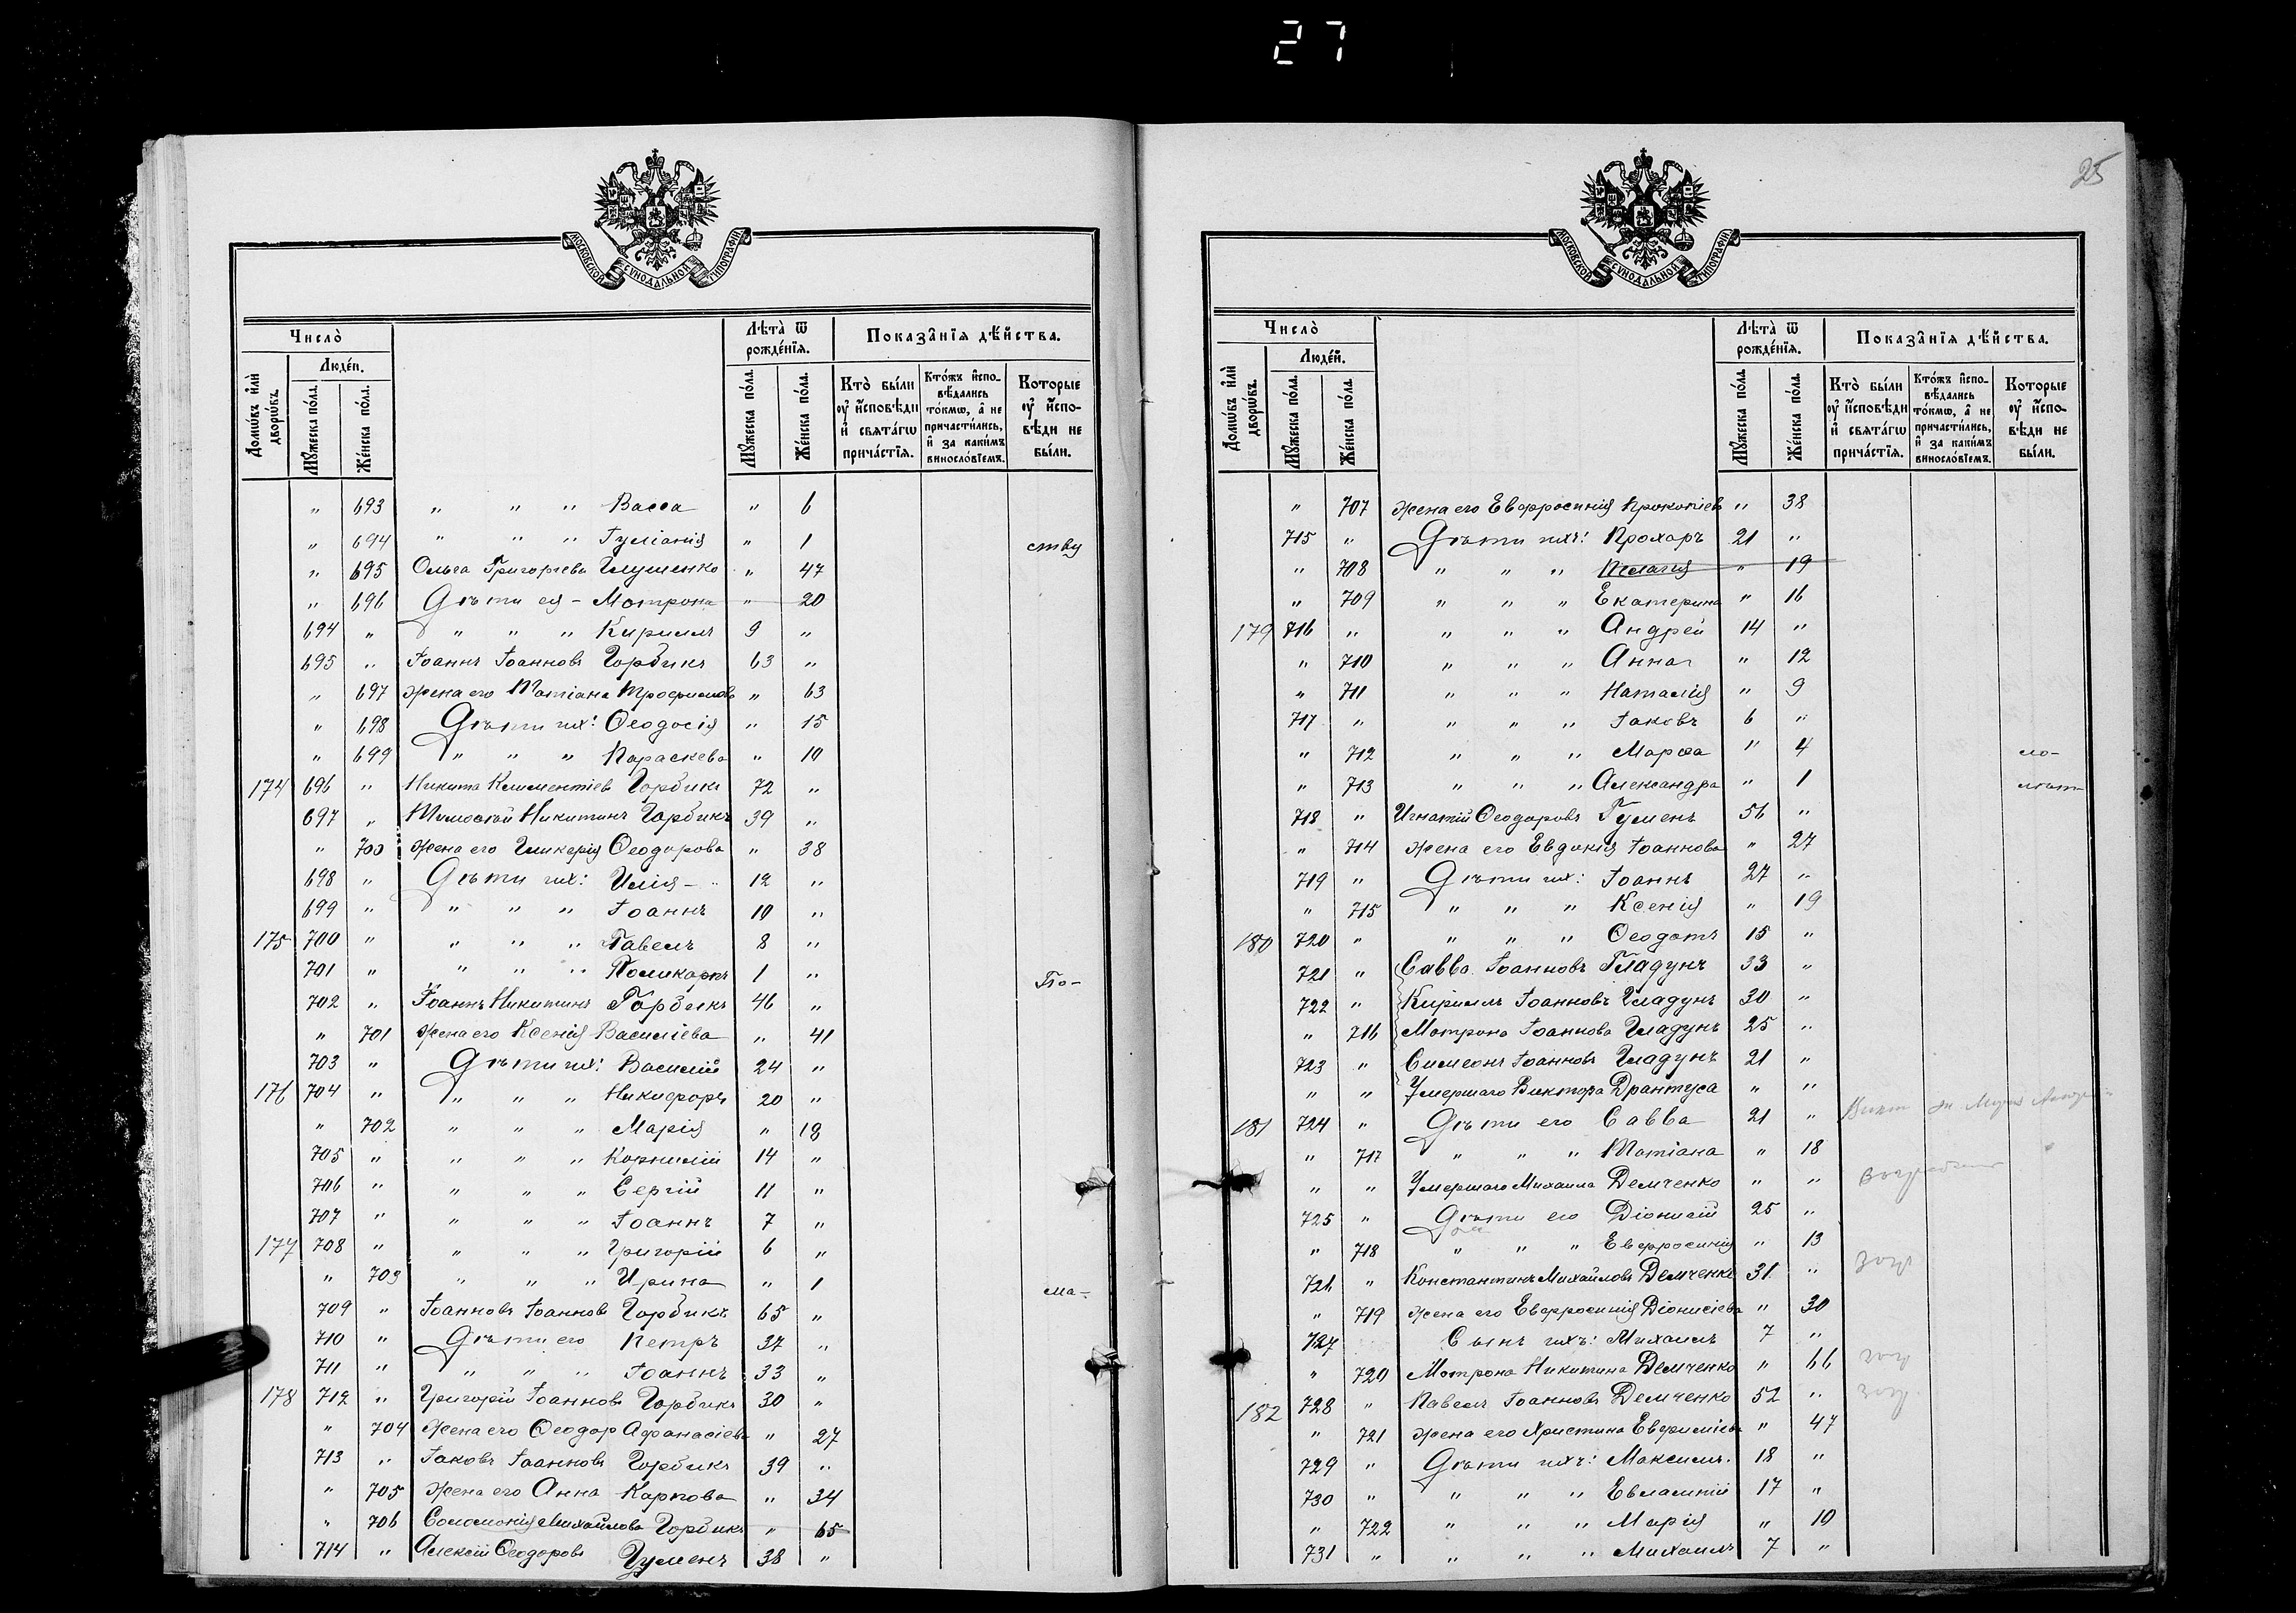 27
МОСКОВСКОЙ СѴНОДАЛЬНОЙ ТИПОГРАФІИ
Число̀
Людéй.
Домѡ́въ и҆лѝ дворѡ́въ.
Мꙋ́жеска по́ла.
Же́нска по́ла.
Лѣта̀ ѿ рожде́нїѧ.
Мꙋ́жеска по́ла.
Же́нска по́ла.
Показа̑нїѧ дѣ́йства.
Кто̀ бы́ли ᲂу҆ и҆́сповѣди и҆ свѧта́гѡ прича́стїѧ.
Кто́жъ и҆спо-вѣ́дались то́кмѡ, а҆ не причасти́лись, и҆ за каки́мъ винослові́емъ.
Кото́рые ᲂу҆ и҆́спо-вѣди не бы́ли.
" 693 " " " Васса " 6
" 694 " " " Іуліанія " 1 ству
" 695 Ольга Григоріева Глушенко " 47
" 696 Дѣти ея - Мотрона " 20
694 " " " " Кириллъ 9 "
695 " Іоаннъ Іоанновъ Горбикъ 63 "
" 697 Жена его Татіана Трофимова " 63
" 698 Дѣти ихъ: Ѳеодосія " 15
" 699 " " " Параскева " 10
174 696 " Никита Климентіев Горбикъ 72 "
697 " Тимоѳей Никитинъ Горбикъ 39 "
" 700 Жена его Гликерія Ѳеодорова " 38
698 " Дѣти ихъ: Илія - 12 "
699 " " " " Іоаннъ 10 "
175 700 " " " " Павелъ 8 "
701 " " " " Поликарпъ 1 " По-
702 " Іоаннъ Никитинъ Горбикъ 46 "
" 701 Жена его Ксенія Василіева " 41
703 " Дѣти ихъ: Василій 24 "
176 704 " " " " Никифоръ 20 "
" 702 " " " Марія " 18
705 " " " " Корнилій 14 "
706 " " " " Сергій 11 "
707 " " " " Іоаннъ 7 "
177 708 " " " " Григорій 6 "
" 703 " " " Ирина " 1 ма-
709 " Іоанновъ Іоаннов Горбикъ 65 "
710 " Дѣти его Петръ 37 "
711 " " " " Іоаннъ 33 "
178 712 " Григорій Іоаннов Горбикъ 30 "
" 704 Жена его Ѳеодор Афанасіева " 27
713 " Іаковъ Іоанновъ Горбикъ 39 "
" 705 Жена его Анна Карпова " 34
" 706 Соломонія Михайлова Горбикъ " 65
714 " Алексій Ѳеодоровъ Гуменъ 38 "
25
МОСКОВСКОЙ СѴНОДАЛЬНОЙ ТИПОГРАФІИ
Число̀
Людéй.
Домѡ́въ и҆лѝ дворѡ́въ.
Мꙋ́жеска по́ла.
Же́нска по́ла.
Лѣта̀ ѿ рожде́нїѧ.
Мꙋ́жеска по́ла.
Же́нска по́ла.
Показа̑нїѧ дѣ́йства.
Кто̀ бы́ли ᲂу҆ и҆́сповѣди и҆ свѧта́гѡ прича́стїѧ.
Кто́жъ и҆спо-вѣ́дались то́кмѡ, а҆ не причасти́лись, и҆ за каки́мъ винослові́емъ.
Кото́рые ᲂу҆ и҆́спо-вѣди не бы́ли.
" 707 Жена его Евфросинія Прокопіев " 38
715 " Дѣти ихъ: Прохаръ 21 "
" 708 " " " Пелагія " 19
" 709 " " " Екатерина " 16
179 716 " " " " Андрей 14 "
" 710 " " " Анна " 12
" 711 " " " Наталія " 9
717 " " " " Іаковъ 6 "
" 712 " " " Марѳа " 4 ло-
" 713 " " " Александра " 1
718 " Игнатій Ѳеодоровъ Гуменъ 56 "
" 714 Жена его Евдокія Іоаннова " 27
719 " Дѣти ихъ: Іоаннъ 27 "
" 715 " " " Ксенія " 19
180 720 " " " " Ѳеодотъ 15 "
721 " Савва Іоанновъ Гладунъ 33 "
722 " Кириллъ Іоанновъ Гладунъ 30 "
" 716 Мотрона Іоаннова Гладунъ 25 "
723 " Симеонъ Іоанновъ Гладунъ 21 "
" " Умершаго Виктора Драntуса " "
181 724 " Дѣти его Савва 21 "
" 717 " " " Татіана " 18
" " Умершаго Михаила Демченко " "
725 " Дѣти его Діонисій 25 "
" 718 " " " Евфросинія " 13
726 " Константинъ Михайловъ Демченко 31 "
" 719 Жена его Евфросинія Діонисіева " 30
727 Сынъ ихъ: Михаилъ 7 "
" 720 Мотрона Никитина Демченко " 66
182 728 " Павелъ Іоанновъ Демченко 52 "
" 721 Жена его Христина Евфиміева " 47
729 " Дѣти ихъ: Максимъ. 18 "
730 " " " " Евлампій 17 "
" 722 " " " Марія " 10
731 " " " " Михаилъ 7 "